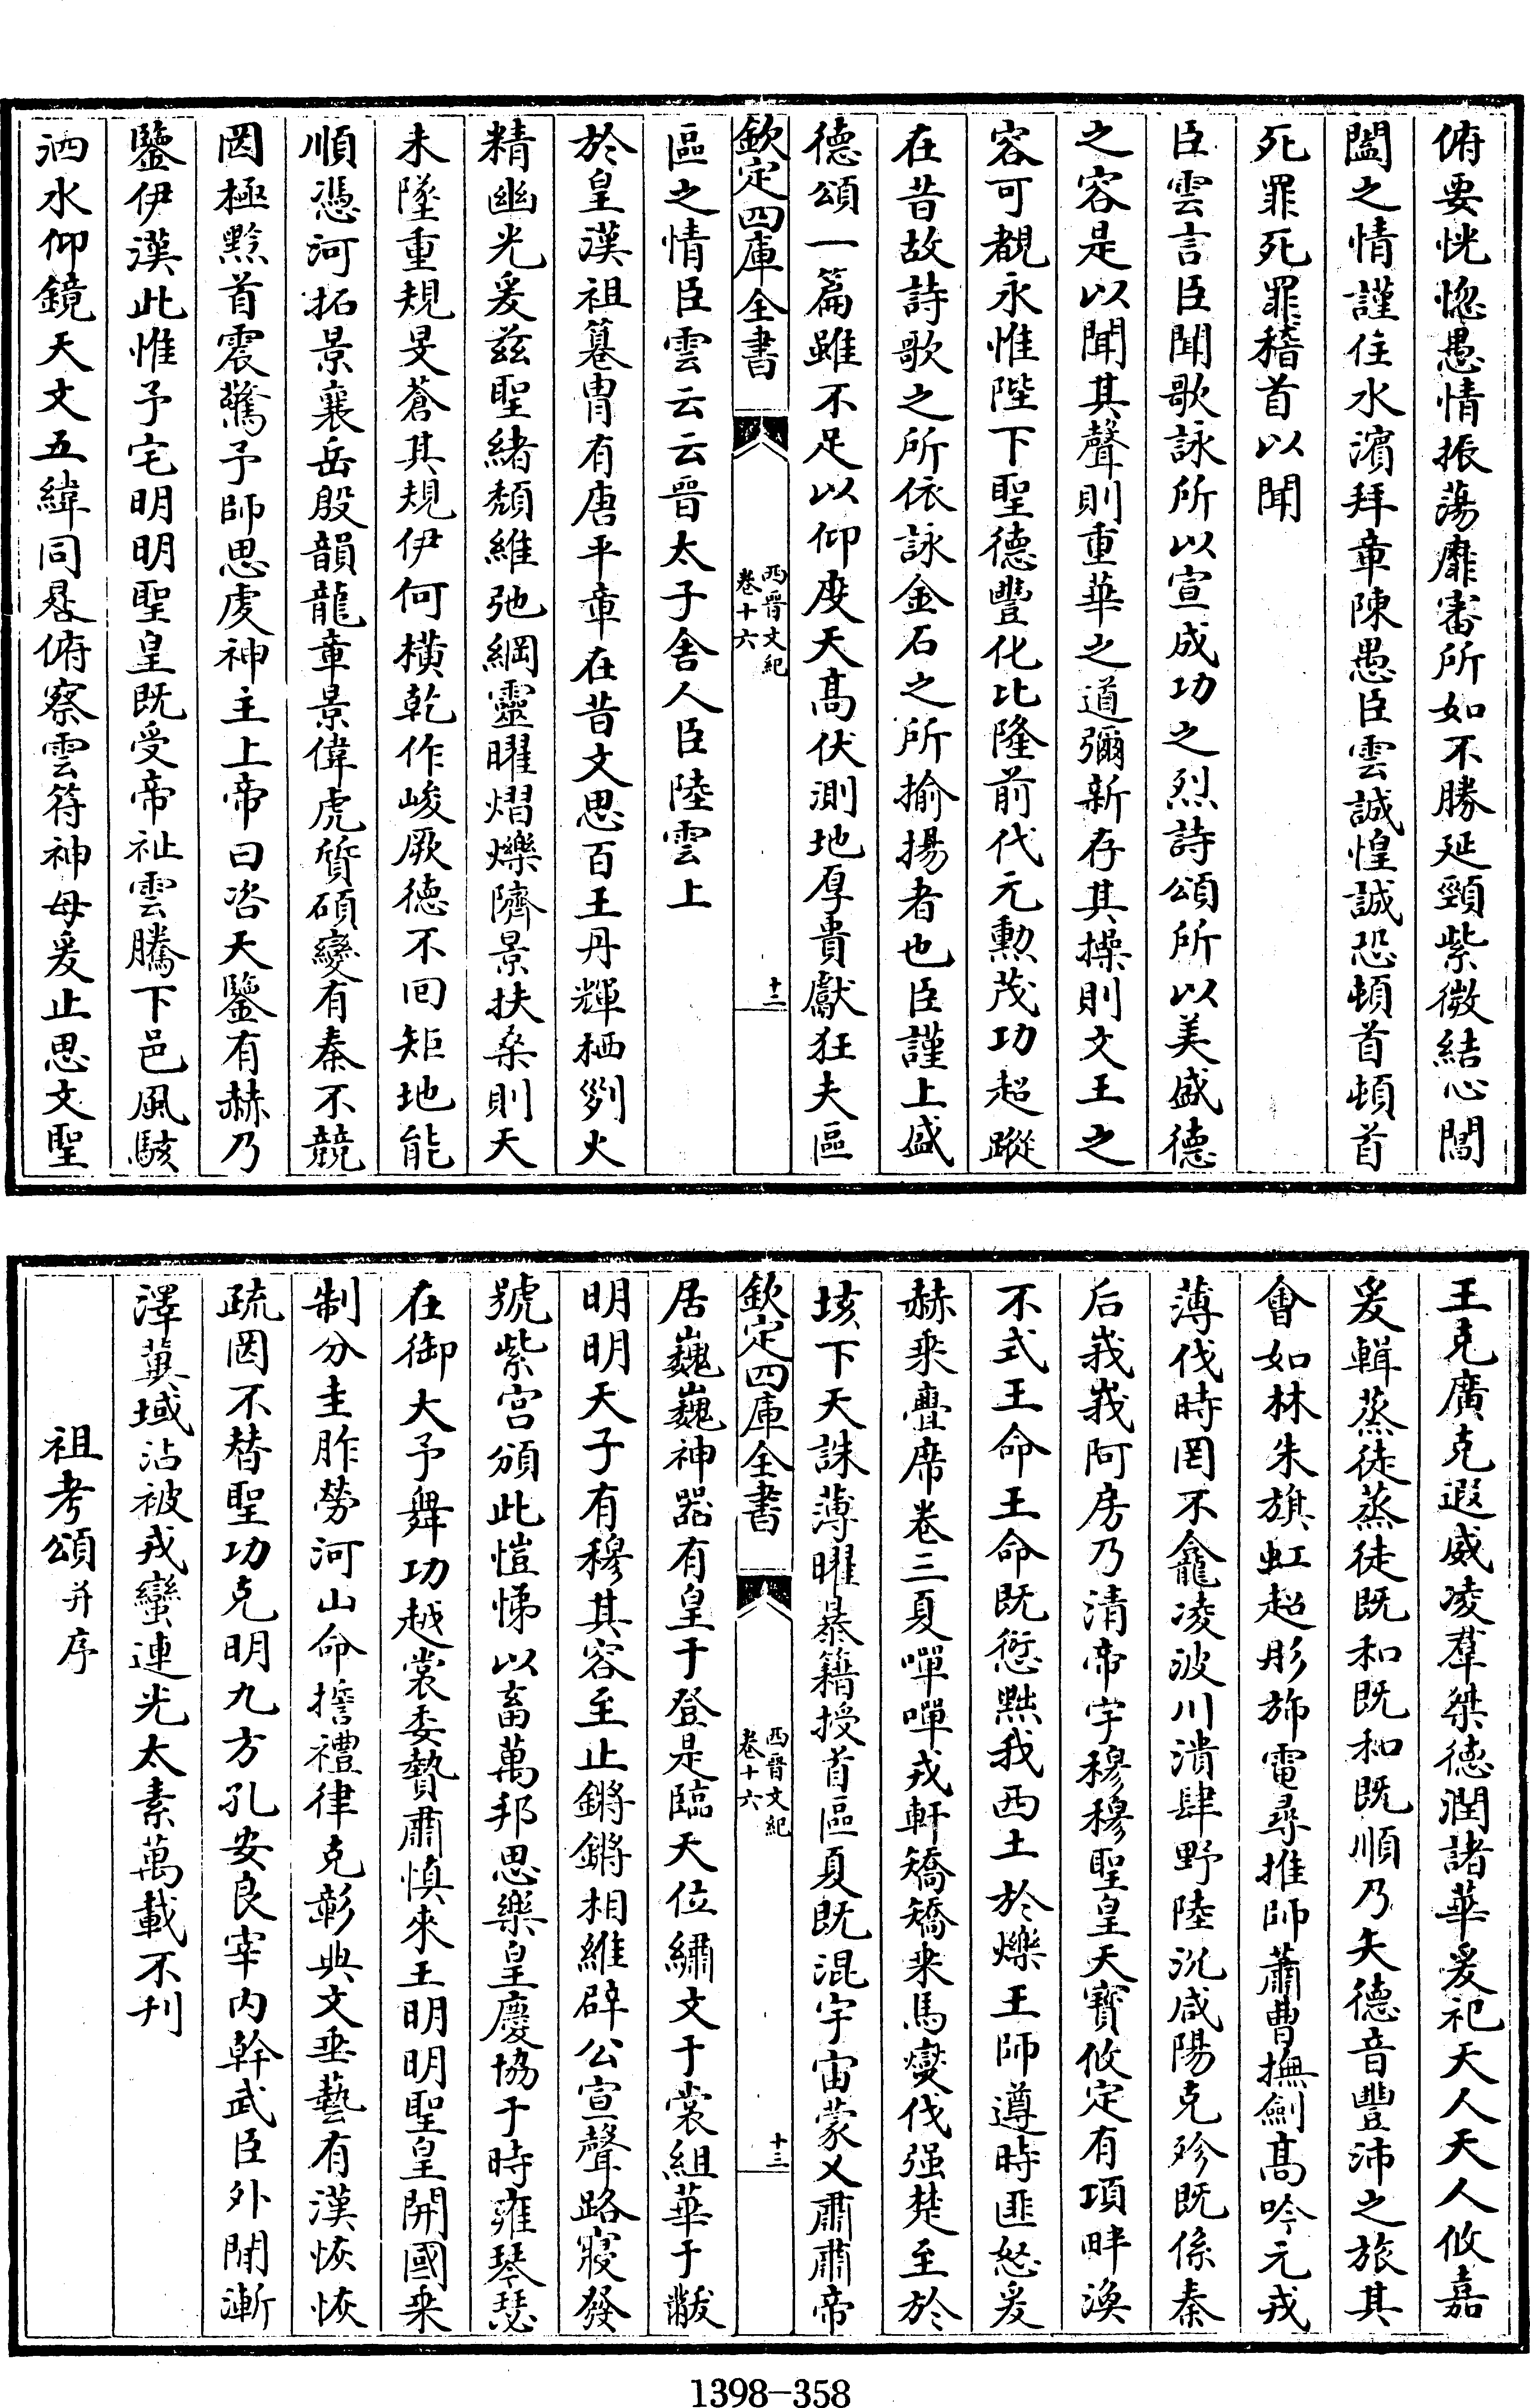 俯要恍惚愚情振蕩靡審所如不勝延頸紫微結心閶
闔之情謹住水濱拜章陳愚臣雲誠惶誠恐頓首頓首
死罪死罪稽首以聞
臣雲言臣聞歌詠所以宣成功之烈詩頌所以美盛德
之容是以聞其聲則重華之道彌新存其操則文王之
容可覩永惟陛下聖德豐化比隆前代元勲茂功超蹤
在昔故詩歌之所依詠金石之所揄揚者也臣謹上盛
德頌一篇雖不足以仰度天高伏測地厚貴獻狂夫區
欽定四庫全書
西晉文紀
卷十六
十二
區之情臣雲云云晉太子舍人臣陸雲上
於皇漢祖纂胄有唐平章在昔文思百王丹輝栖剡火
精幽光爰兹聖緒頽維弛綱靈曜熠爍隮景扶桑則天
未墜重規旻蒼其規伊何横乾作峻厥德不回矩地能
順憑河拓景襄岳殷韻龍章景偉虎質碩變有秦不競
罔極黔首震驚予師思虔神主上帝曰咨天鑒有赫乃
鑒伊漢此惟予宅明明聖皇既受帝祉雲騰下邑風駭
泗水仰鏡天文五緯同晷俯察雲符神母爰止思文聖
王克廣克遐威凌羣桀德潤諸華爰祀天人天人攸嘉
爰輯蒸徒蒸徒既和既和既順乃矢德音豐沛之旅其
會如林朱旗虹超彤斾電尋推師蕭曹撫劍高吟元戎
薄伐時罔不龕凌波川潰肆野陸沉咸陽克殄既係秦
后峩峩阿房乃清帝宇穆穆聖皇天寳攸定有項畔渙
不式王命王命既愆黜我西土於爍王師遵時匪怒爰
赫乗疊席卷三夏嘽嘽戎軒矯矯乗馬燮伐强楚至於
垓下天誅薄曜暴籍授首區夏既混宇宙蒙乂肅肅帝
欽定四庫全書
西晉文紀
卷十六
十三
居巍巍神器有皇于登是臨天位繡文于裳組華于黻
明明天子有穆其容至止鏘鏘相維辟公宣聲路寢發
號紫宫頒此愷悌以畜萬邦思樂皇慶協于時雍琴瑟
在御大予舞功越裳委贄肅慎來王明明聖皇開國乗
制分圭胙勞河山命誓禮律克彰典文垂藝有漢恢恢
疏罔不替聖功克明九方孔安良宰内幹武臣外閑漸
澤冀域沾被戎蠻連光太素萬載不刋
祖考頌并序
1398-358